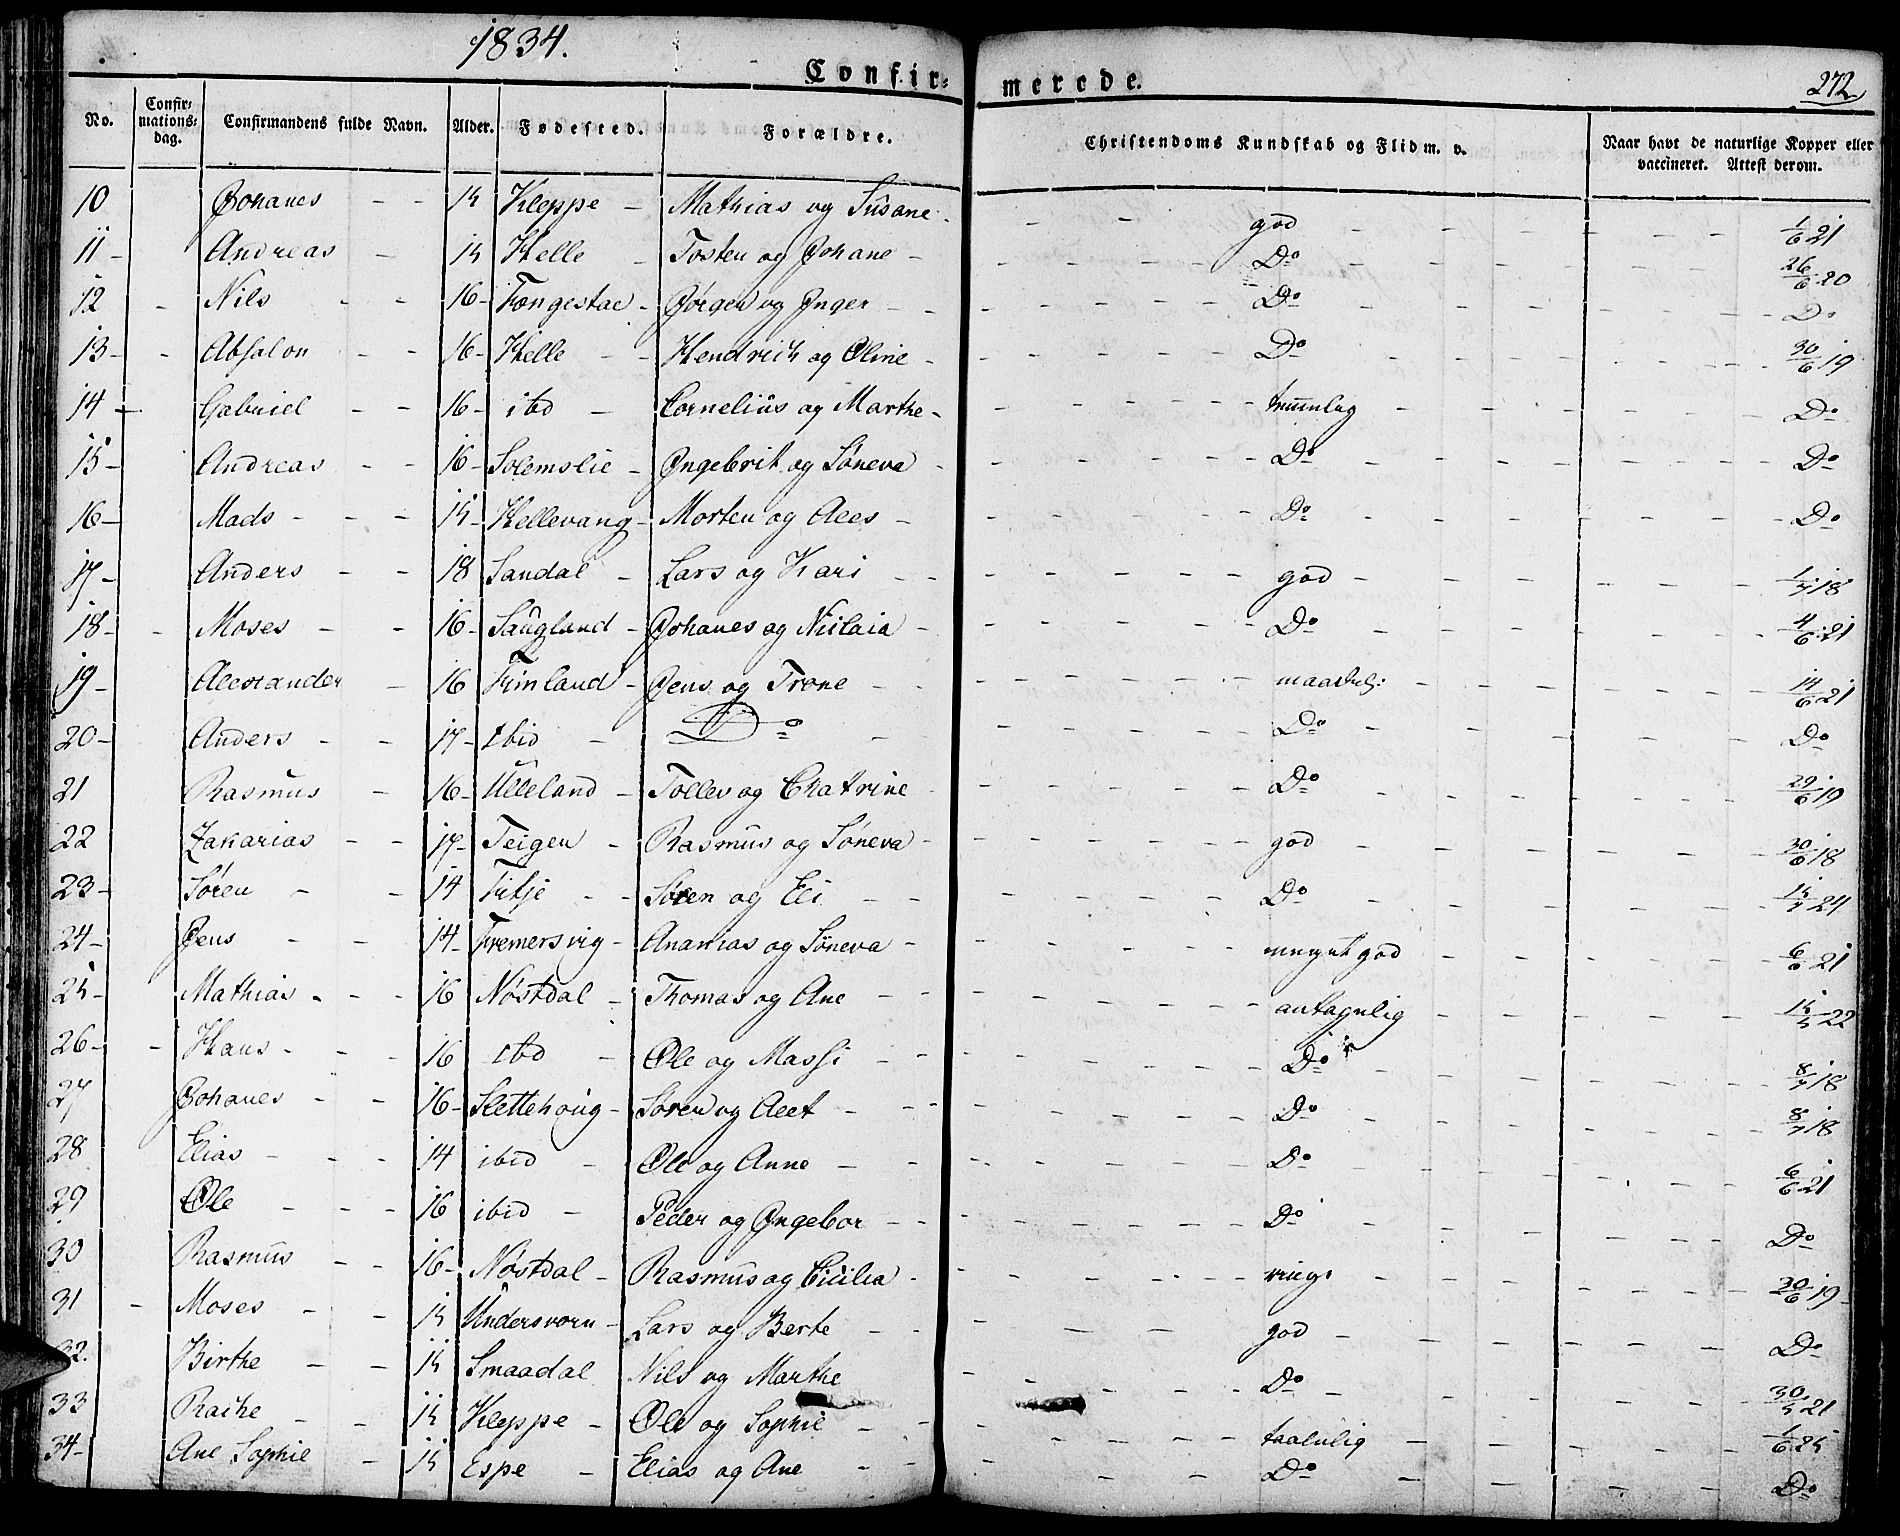 1834.
Confir= merede.
272
No. Confir= mations= dag. Confirmandens fulde Navn. Alder. Fødested. Forældre. Christendoms Kundskab og Flid m. v. Naar havt de naturlige Kopper eller vaccineret. Attest derom.
10 Johanes - - 15 Kleppe - Mathias og Susane - god 1/6 21
11 - Andreas - 15 Helle - Tosten og Johane - Do 26/6 20
12 - Nils - - 16 - Tongestae - Jørgen og Inger - Do Do
13 - - Absalon - - 16 - Helle - - Hendrich og Oline - Do 30/6 19
14 - Gabriel - - 16 - ibd - Cornelius og Marthe - Do
15 - Andreas - - 16 - Solemslie - Ingebrit og Søneva - Do Do
16 - Mads - - - 15 - Hellevang - Morten og Aees - Do Do
17 - Anders - - 18 Sandal - Lars og Kari - god 1/7 18
18 - - Moses - - 16 - Saugland - Johanes og Nicolaia - Do 4/6 21
19 - Alexander - 16 Fimland - Jens og Trone - maadel: 14/6 21
20 - Anders - - 17 - Ibid - Do - Do Do
21 Rasmus - 16 - Ulleland - Tollev og Chatrine - Do 29/6 19
22 Zakarias - - 17 - Teigen - Rasmus og Søneva - god 30/6 18
23 - Søren - - 14 Fitje - - Søren og Eli - Do 24
24 - Jens - - 14 - Fremersvig - Ananias og Søneva - meget god 6/6 21
25 - Mathias - - - 16 Nøstdal - Thomas og Ane - antagelig 15/5 22
26 - - Hans - - - 16 ibd - Ole og Massi - Do 8/7 18
27 Johanes - - 16 - Slettehoug - Søren og Aeet - Do 8/7 18
28 Elias - - - 14 ibid - Ole og Anne - Do 6/6 21
29 Ole - - - 16 ibid - Peder og Ingebor - Do Do
30 Rasmus - - 16 - Nøstdal - Rasmus og Cicilia - ring: 30/6 19
31 - Moses - - 15 Undersvorn - Lars og Berte - god Do
32. Birthe - - 15 Smaadal Nils og Marthe Do 30/5 21
33 Rache - - 15 Kleppe - Ole og Sophie - taalelig 1/6 25
34 - Ane Sophie - 15 Espe - Elias og Ane - Do Do